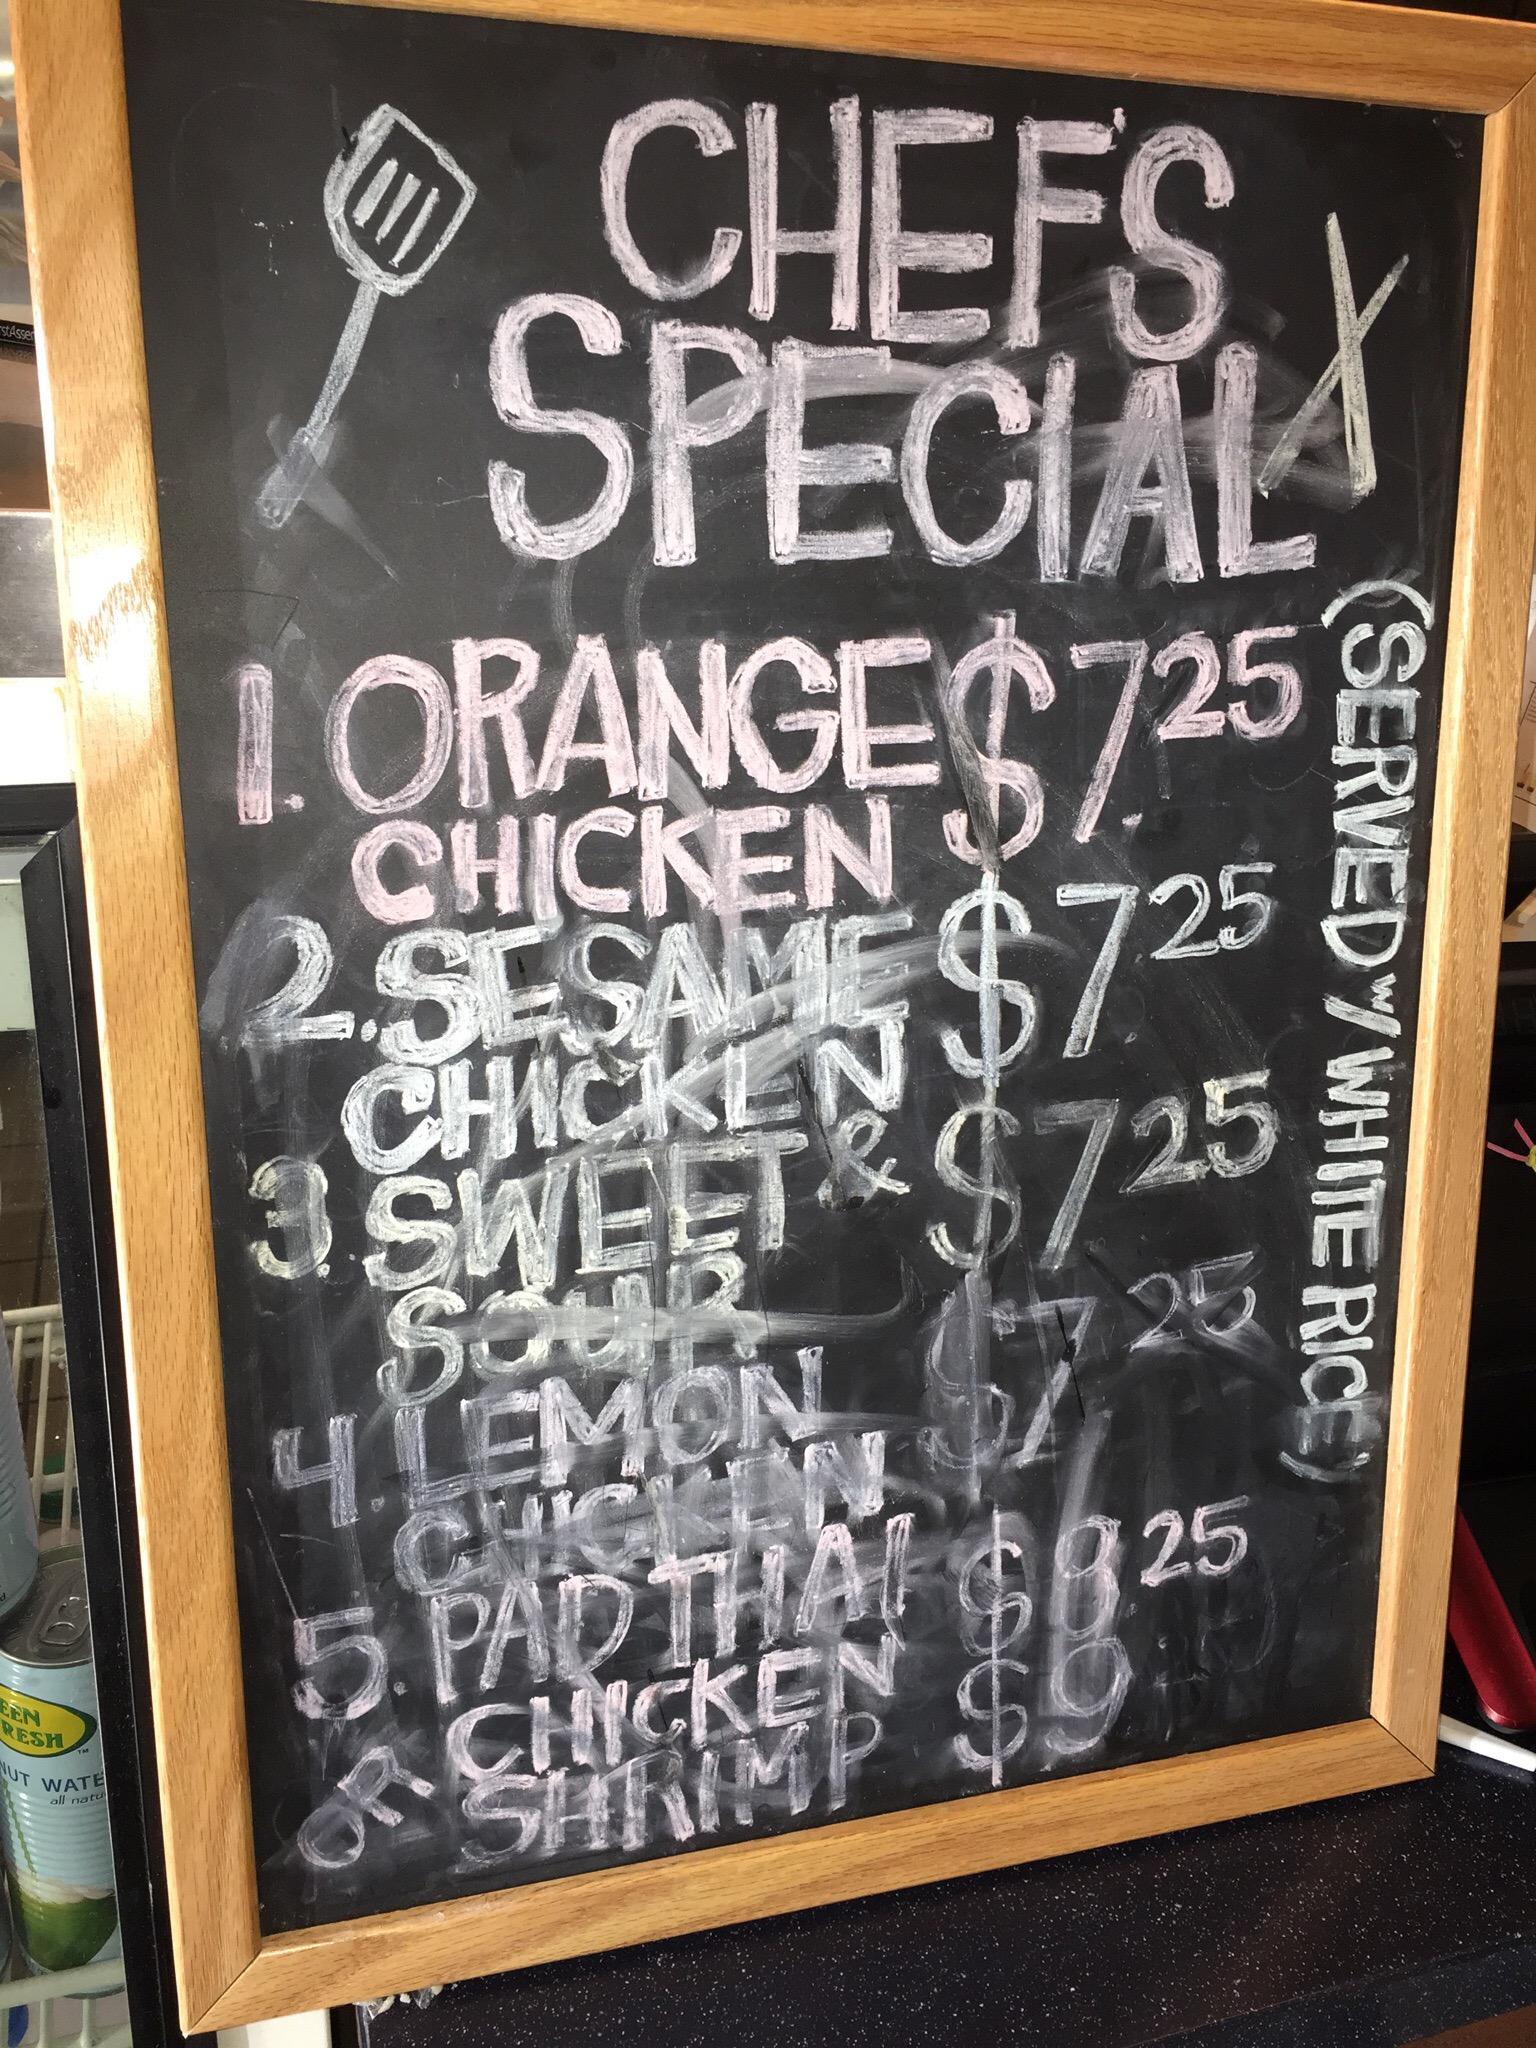 CHEF'S
SPECIAL
1. ORANGE $7.25
CHICKEN
2. SESAME $7.25
CHICKEN
3. SWEET & $7.25
SOUR
4. LEMON $7.25
CHICKEN
5. PAD THAI $8.25
CHICKEN $9
OR SHRIMP
(SERVED W/ WHITE RICE)
EEN
RESH
NUT WATE
all natu